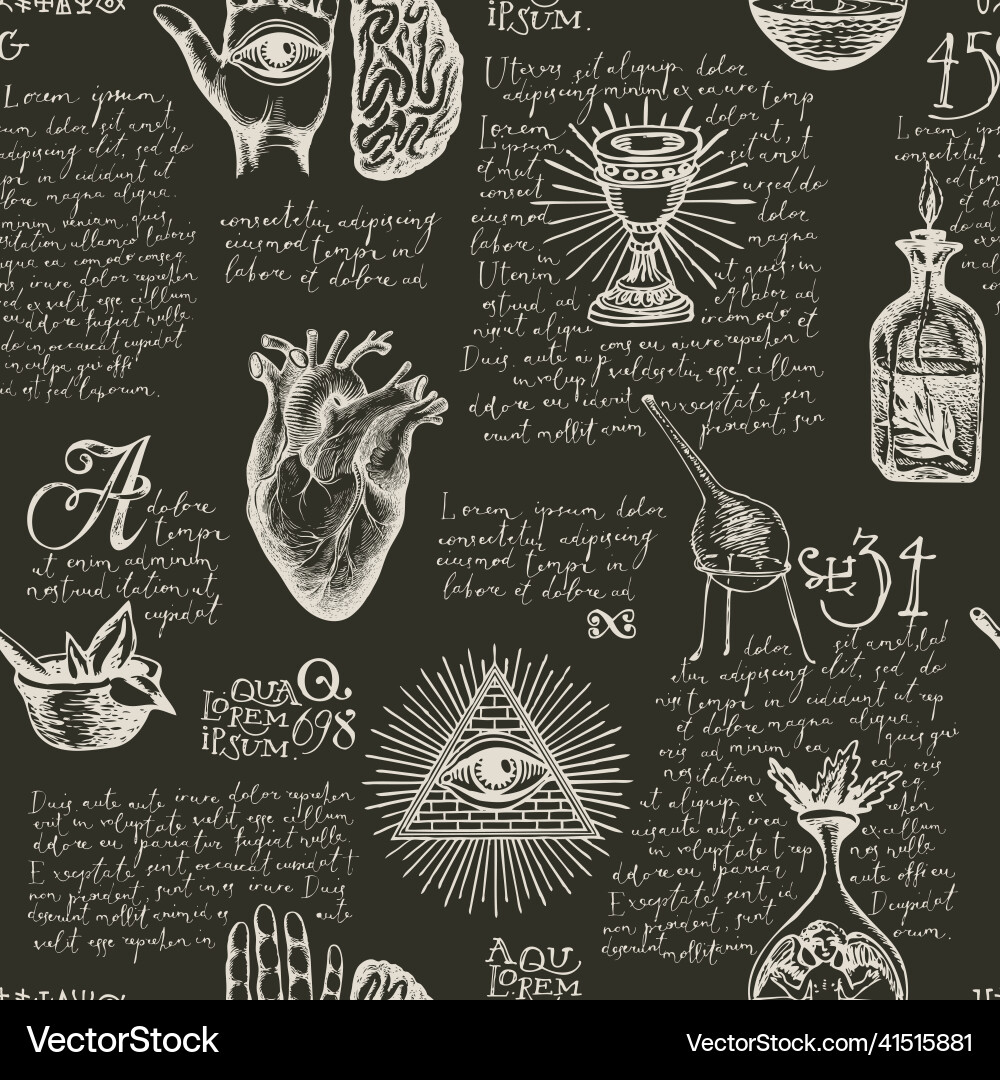 G
Lorem ipsum,
cum dolor sit amet,
adipiscing elit, sed do
in cididunt ut
lore magna aliqua.
minim veniam, quis,
ullamco laboris
ea comodo conseq.
irure dolor reprehen
ex velit esse cillum
eu dolore fugiat nulla.
do in occaecat cupidat
in culpa qui offi
id est sed laborum.
consectetur adipiscing
eiusmod tempr in
labore et dolore ad
iPSUM.
sit aliquip dolor
adipiscing minim ex ea ure temp
Lorem
ipsum
et mut
consect
eiusmod
labore
in
Utenim
ostrud ad
nisi ut aliqui
dolor
ut, t
sit amet
ur sed do
dolor
magna
ut quis, in
eg labor ad
incomodo et
cons eu au ure reprehen
Duis aute au
in volup
esse cillum
dolore eu iderit
nxceptate sin
erunt mollit anim
proident, sun
45
Lorem
consectetur
A
dolore
tempr
ut enim ad minim
nostrud itation ut
cupidat
Lorem ipsum dolor
consectetur adipiscing
eiusmod tempr in
labore et dolore ad
34
dolor
sit amet, lab
etur adipiscing elit, sed do
nisi tempr in cididunt ut rep
et dolore magna aliqua.
quis qui
oris ad minim ea
ea oris
nositation
eg.
ut aliquip ex
rehen
uisaute aute irea
ex cillum
in voluptate t rep
nos nulla
dolore eu pariar
aute offi eu
Exceptate sint id
D cupidat
non proident, sunt
orum.
deserunt mollit anim
QUA Q.
LOREM 698
iPSUM.
Duis aute aute irure dolor reprehen
erit in voluptate velit esse cillum
dolore eu pariatur fugiat nulla.
Exceptate sint occaecat cupidat t
non proident, sunt in es irure Duis
deserunt mollit anim id es aute
velit esse reprehen in
AQU
LOREM
VectorStock®
VectorStock.com/41515881